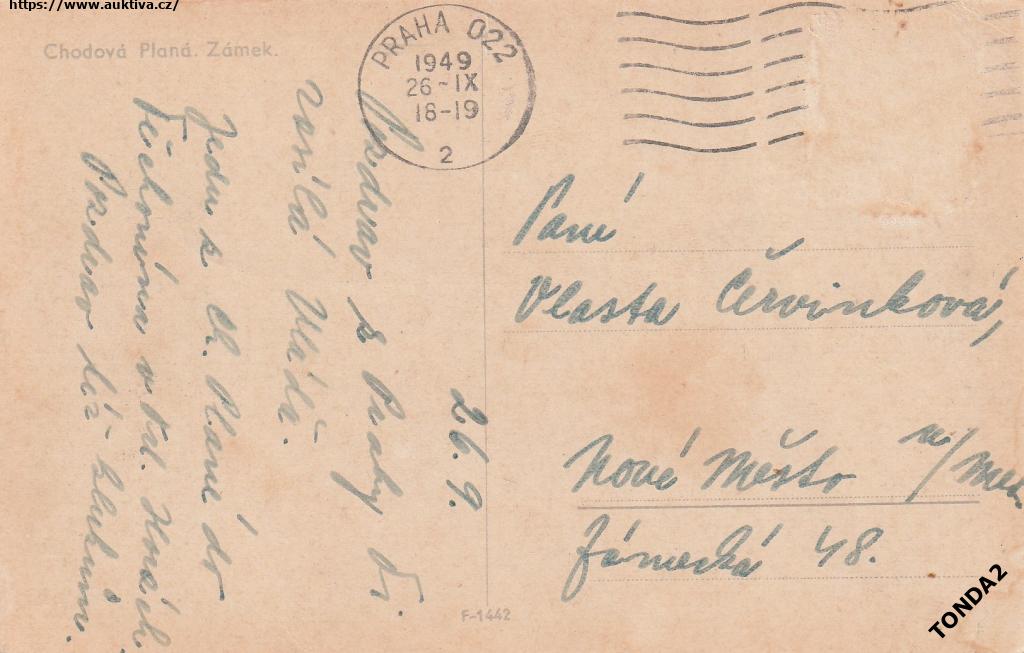 https://www.auktiva.cz/
Chodová Planá. Zámek.
PRAHA 022
1949
26-IX
18-19
2
26. 9.
Pozdrav z Prahy Ti
zasílá Vláďa.
Jedu z Ch. Plané do
v Krl. Horách.
Pozdrav též
Paní
Vlasta Červinková,
Nové Město n/Met.
Zámecká 48.
F-1442
TONDA2